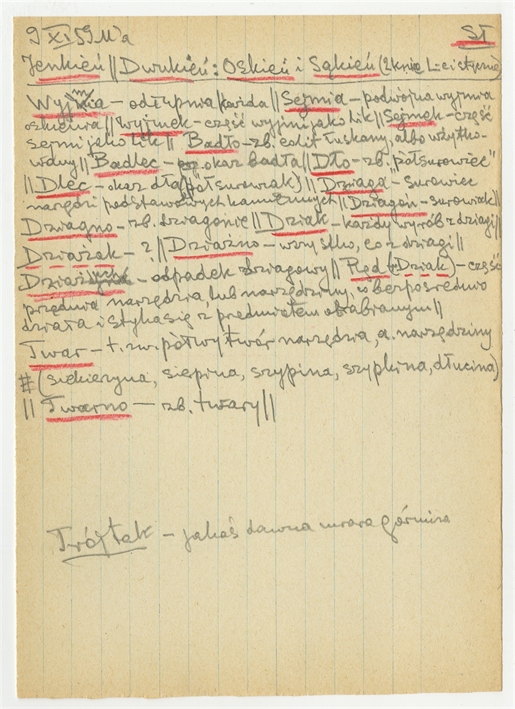 9 XI 59 W-a SŁ
Jenkień || Dwukień: Oskień i Sąkień (
Wyjmia – odłupnia każda || Sejmia – podwójna wyjmia
oskienia || Wyjmek – część wyjmi jako lik || Sejmek – część
sejmi jako lik || Badło – zb. eolit łuskany, albo użytko-
wany || Badlec – okaz badła || Dło – zb. "półsurowiec"
|| Dlec – okaz dła (półsurowiak) || Dziaga – surowiec
narzędzi podstawowych kamiennych || Dziagoń – surowiak ||
Dziagno – zb. dziagonie || Dziak – każdy wyrób z dziagi ||
Dziażak – ? || Dziażno – wszystko, co z dziagi ||
– odpadek dziagowy || Pięd (Dziak) – część
przednia narzędzia, lub narzędziny, bezpośrednio
działa i styka się z przedmiotem obrabianym ||
Twar – t. zw. półwytwór narzędzia, a. narzędziny
# (siekierzyna, sierpina, szypina, szyplina, dłucina)
|| Twarno – zb. twary ||
Trójtak – jakaś dawna miara górnicza